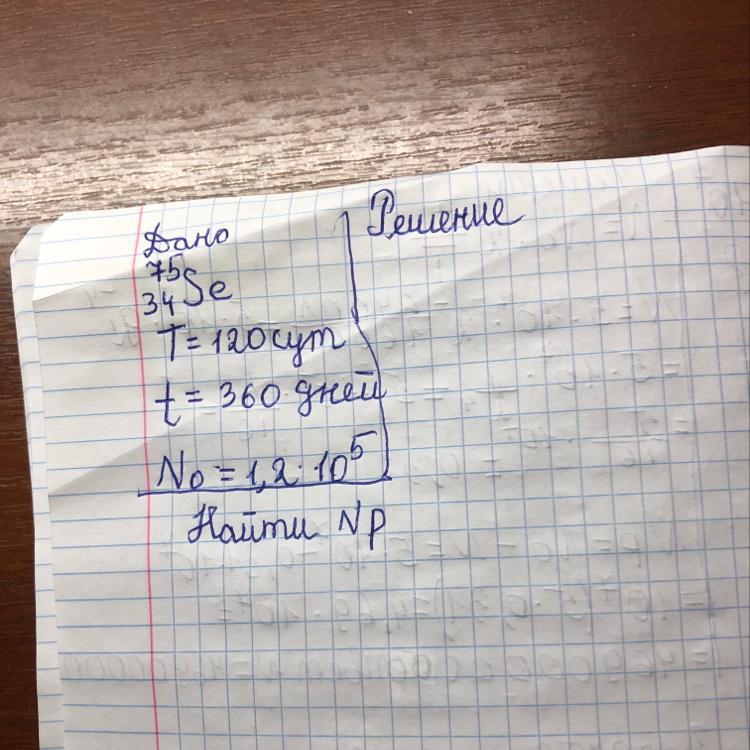 Дано
Решение
75
34 Se
T = 120 сут
t = 360 дней
No = 1,2 · 10^5
Найти Np